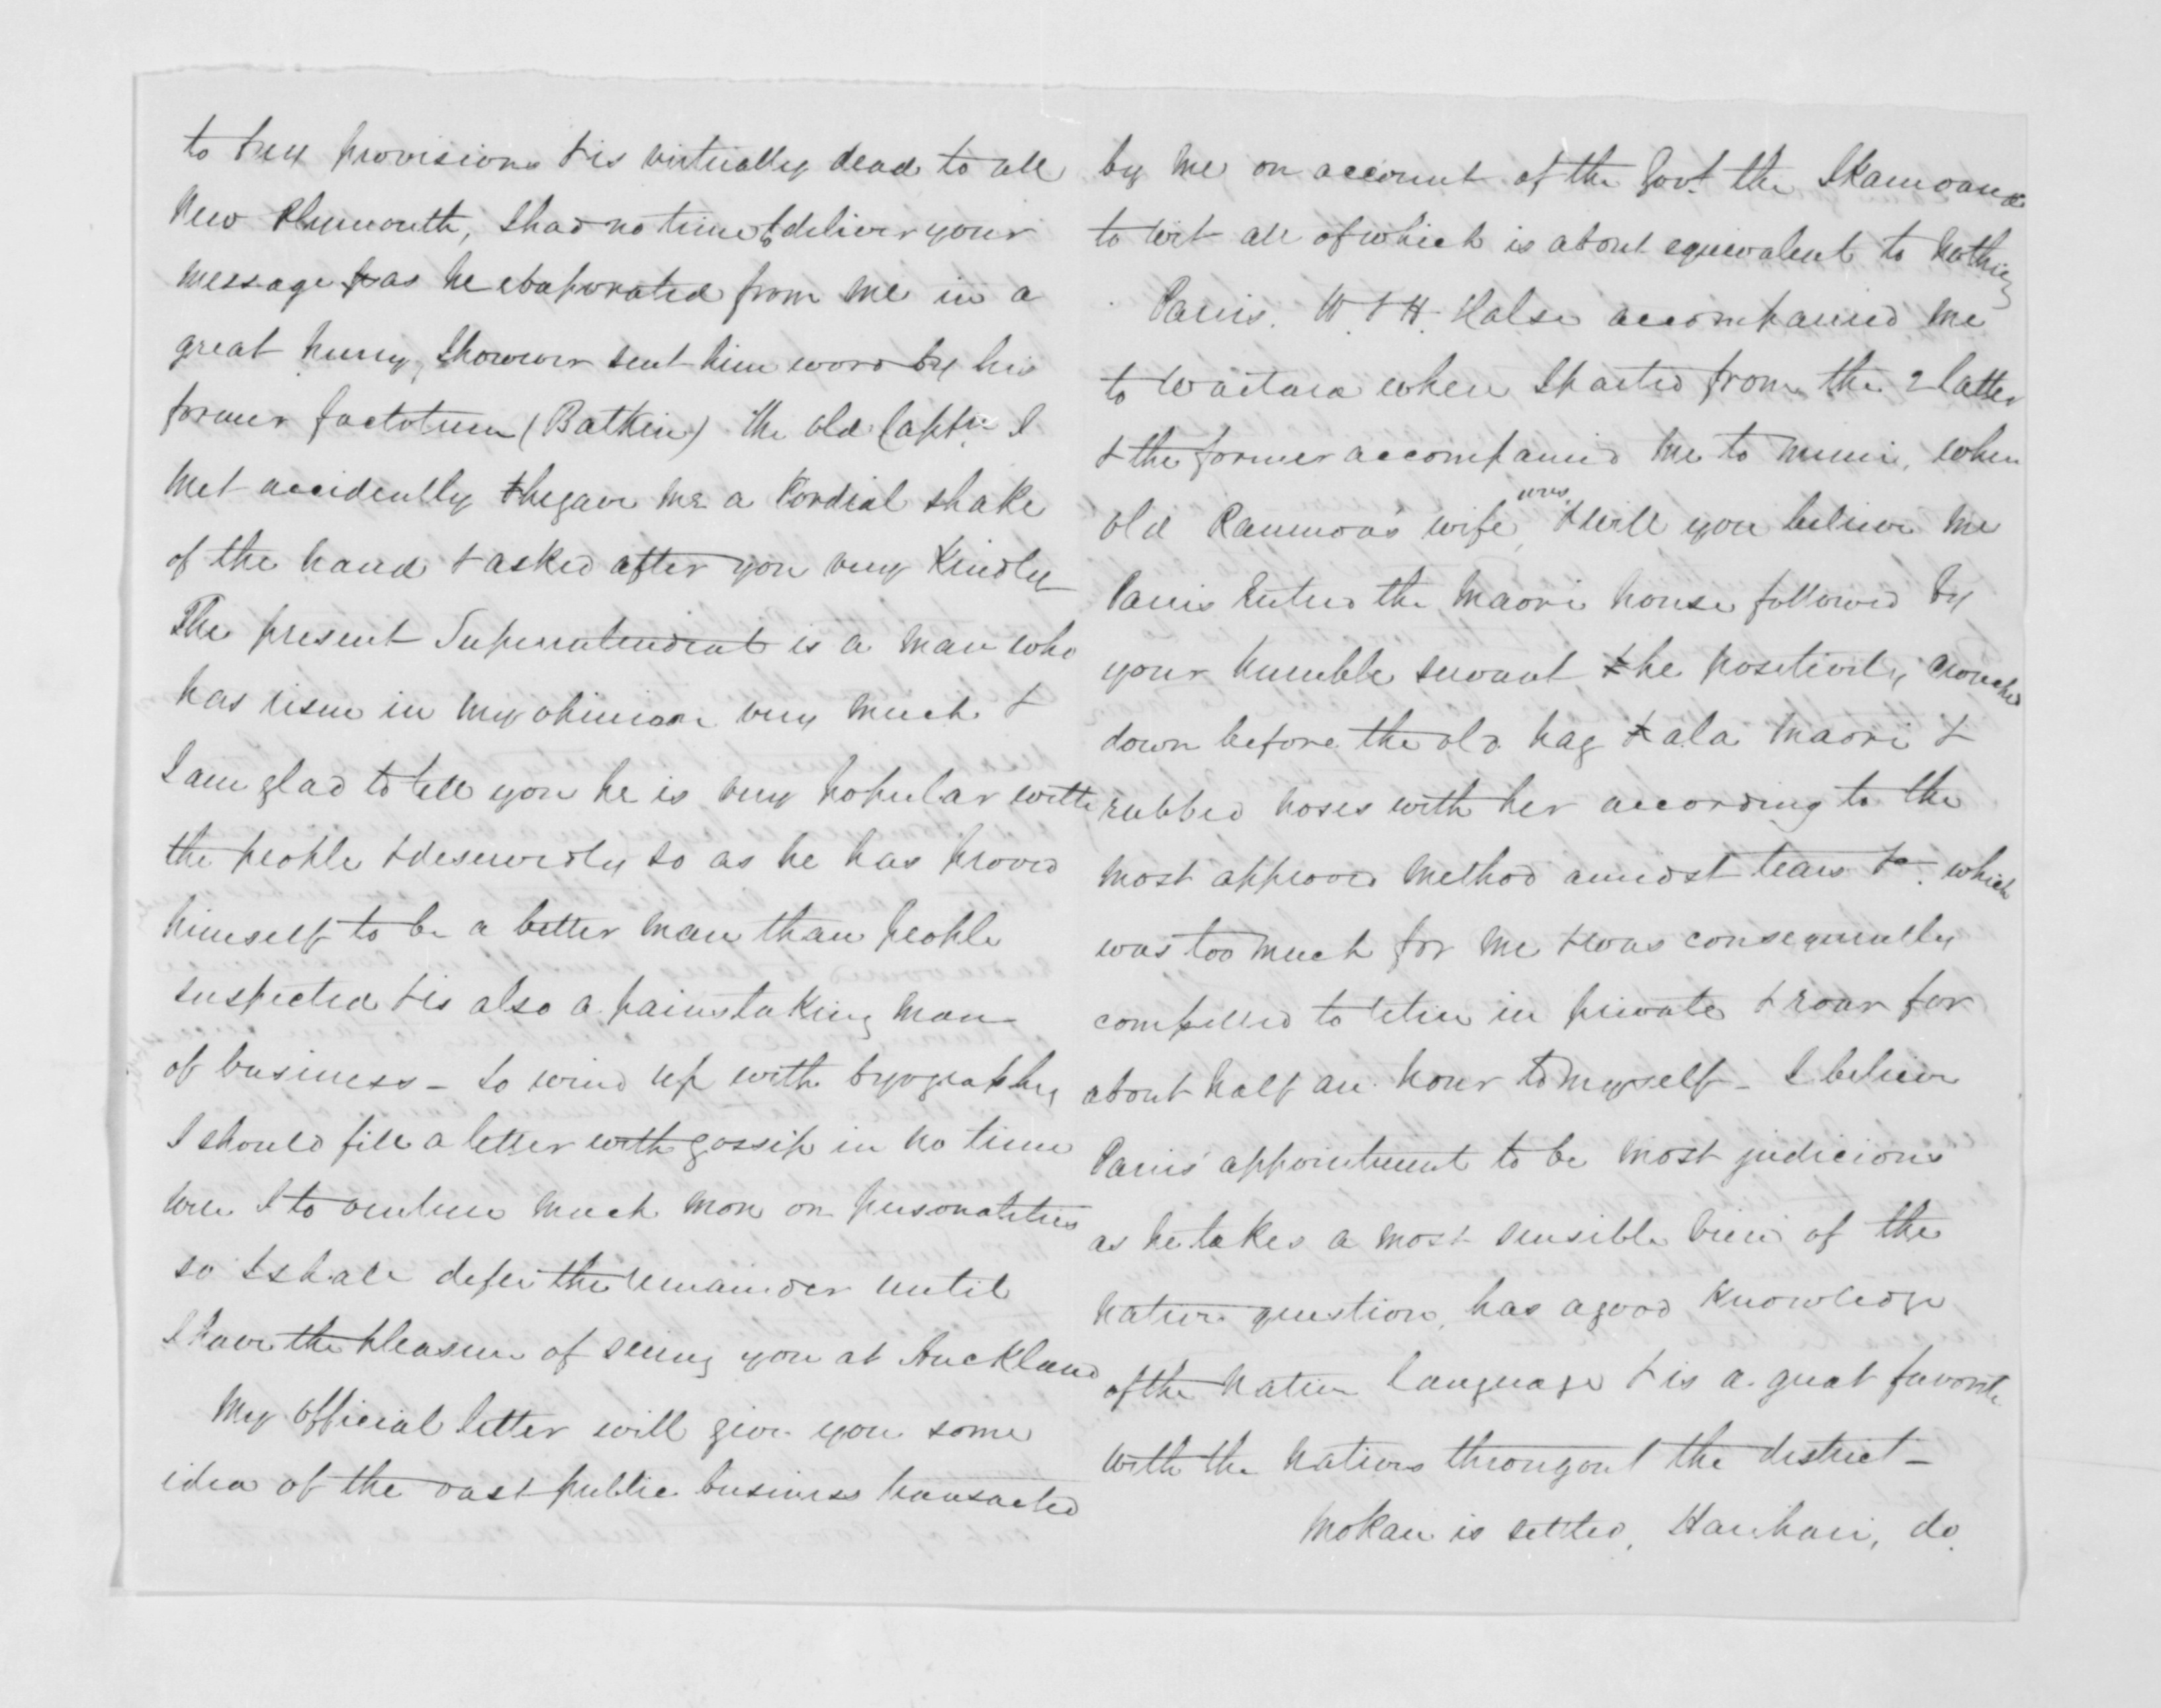 to buy provisions & is virtually dead to all
New Plymouth, I had no time to deliver your
message as he evaporated from me in a
great hurry, I however sent him word by his
former factotum (Batkin) The old Captn. I
met accidently & he gave me a Kordial shake
of the hand & asked after you very Kindly
The present Superintendent is a man who
has risen in my opinion very much &
I am glad to tell you he is very popular with
the people & deservedly so as he has proved
himself to be a better man than people
suspected & is also a painstaking man
of business - to wind up with byography
I should fill a letter with gossip in no time
were I to venture much more on personalities
so I shall defer the remainder until
I have the pleasure of seeing you at Auckland
My official letter will give you some
idea of the vast public business transacted
by me on account of the Govt. the Ikamoana
to wit all of which is about equivalent to nothing
Parris. W. & H. Halse accompanied me
to Waitara when I parted from the 2 latter
& the former accompanied me to mimi, when
old Raumoa's wife was, & will you believe me
Parris entered the Maori house followed by
your humble servant & he positively crouched
down before the old hag a la Maori &
rubbed noses with her according to the
most approved method amidst tears &c. which
was too much for me & was consequently
compelled to retire in private & roar for
about half an hour to myself - I believe
Parris' appointment to be most judicious
as he takes a most sensible view of the
native question, has a good Knowledge
of the native language & is a great favorite
with the natives througout the district -
Mokau is settled, Hauhari, do.